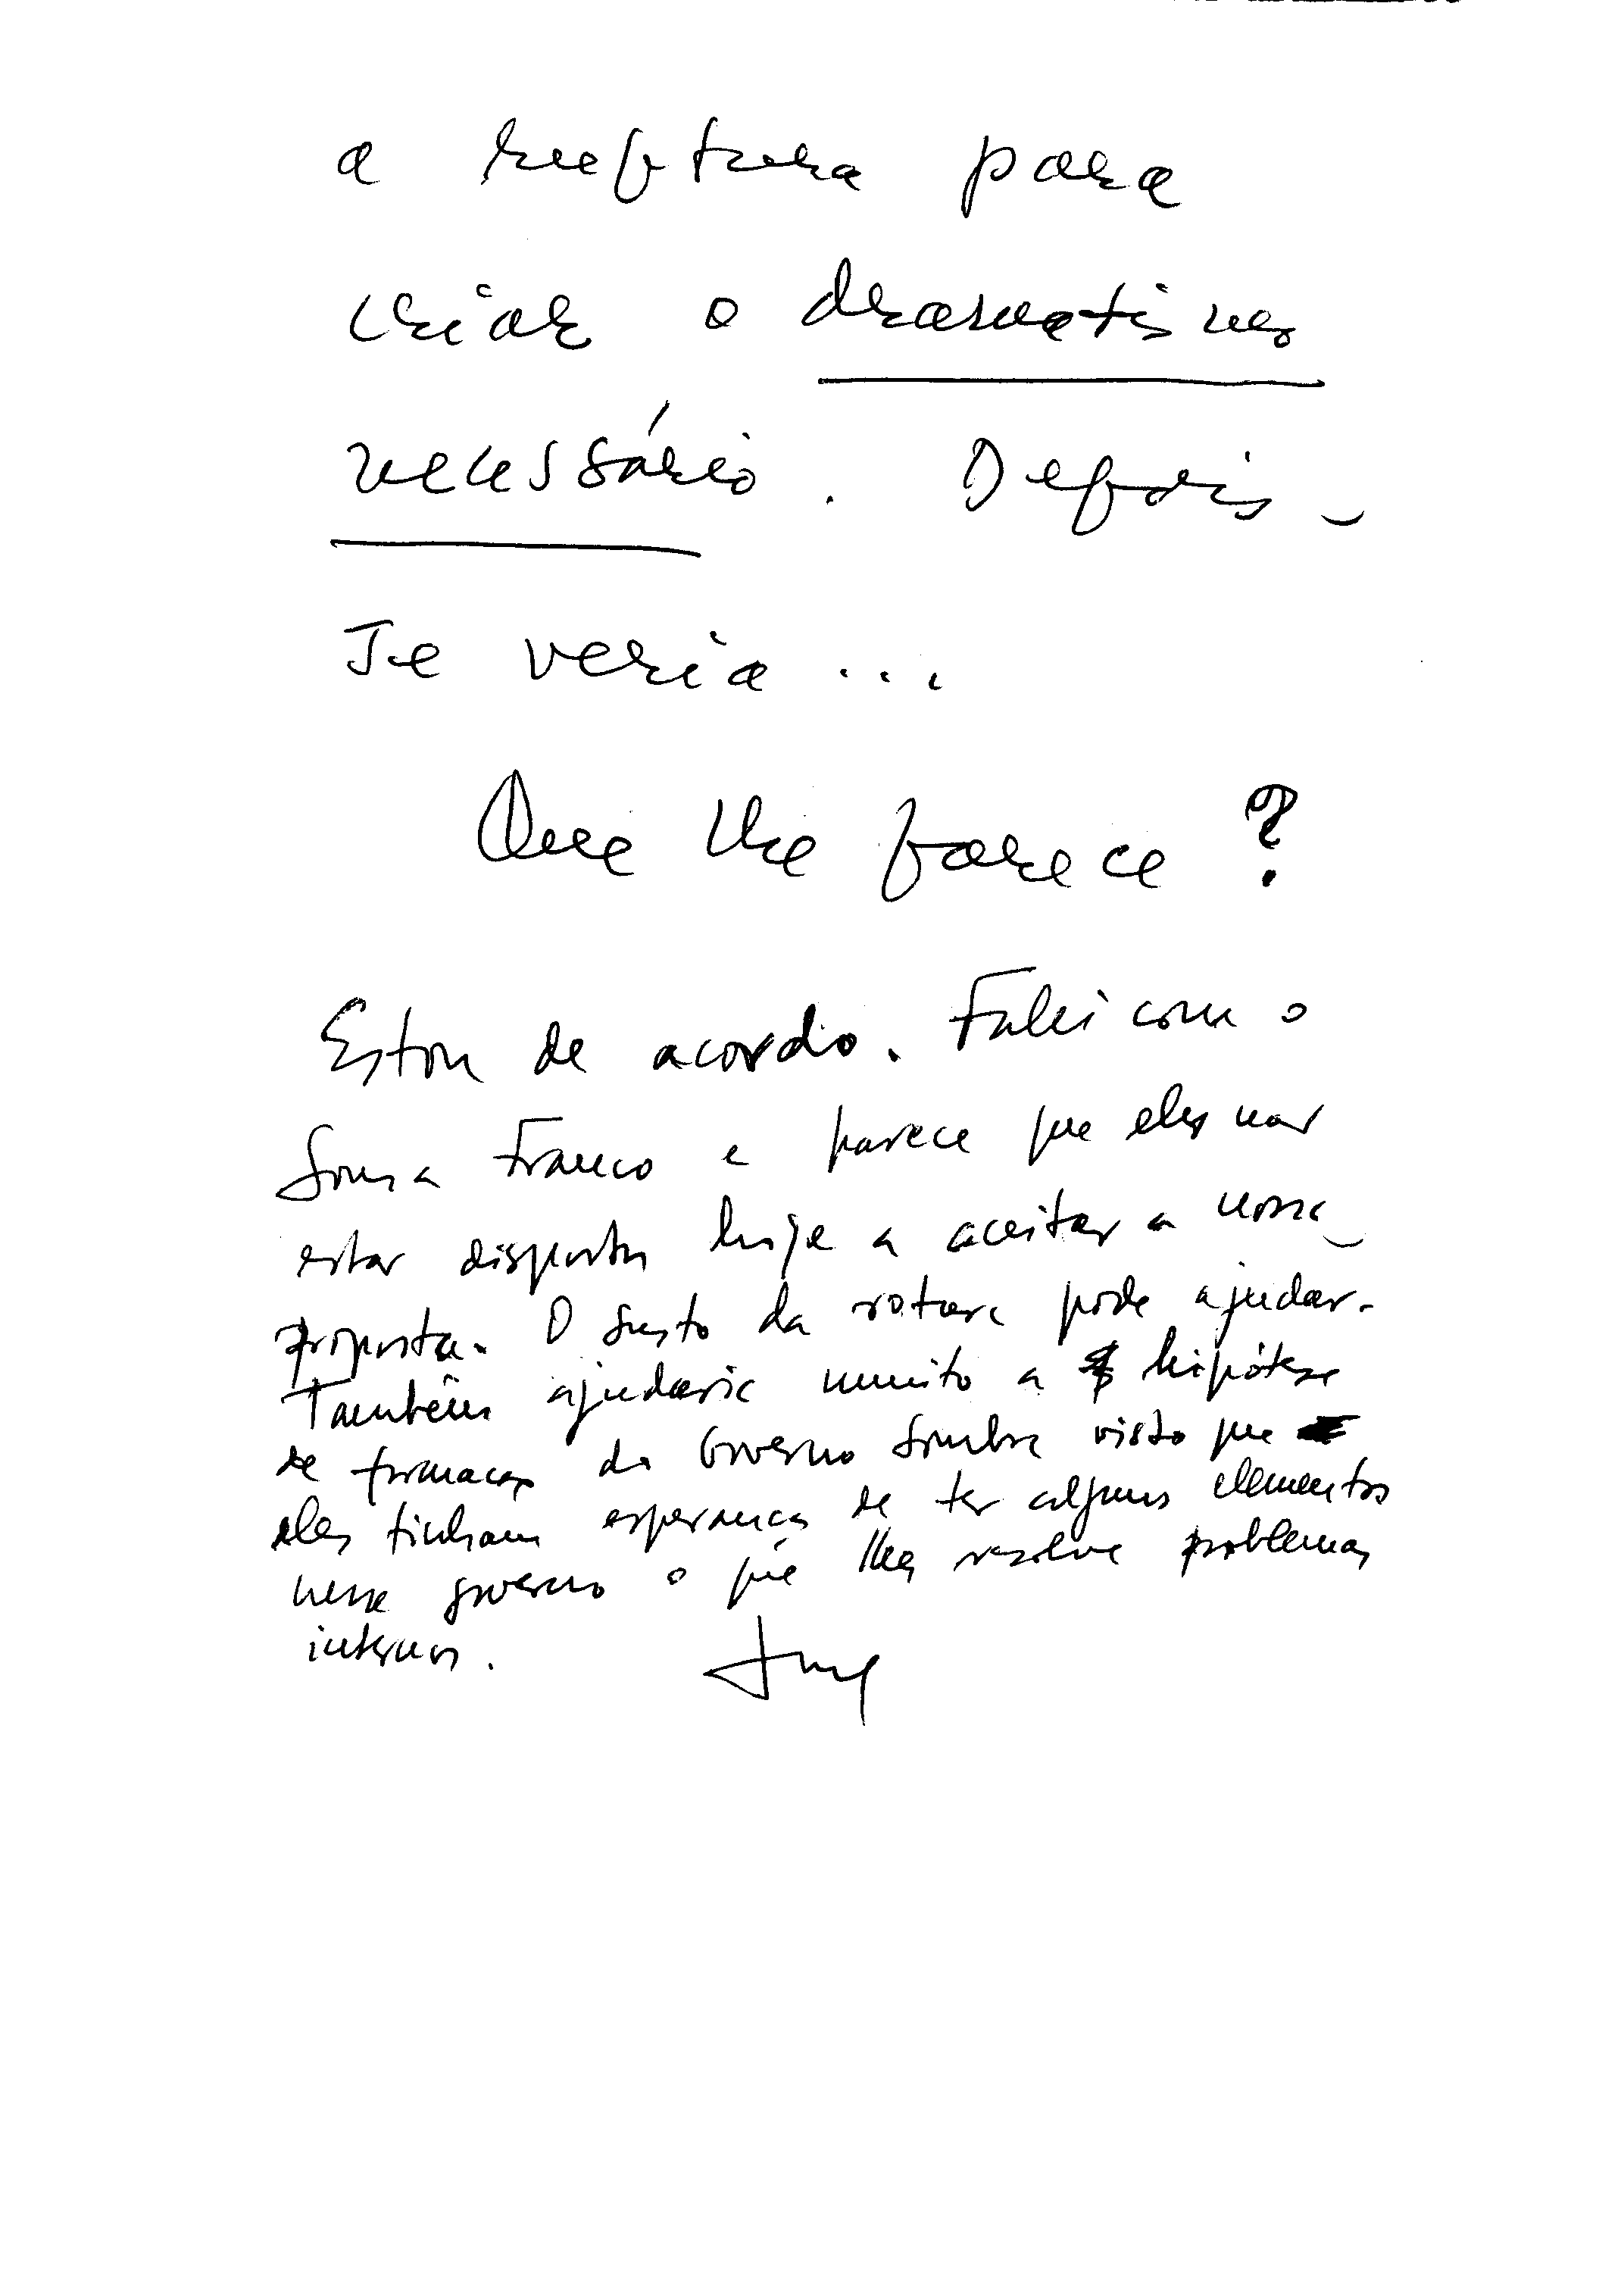 a ruptura para
criar o dramatismo
necessário. Depois
se veria...
Que lhe parece?
Estou de acordo. Falei com o
Sousa Franco e parece que eles não
estão dispostos hoje a aceitar a nossa
proposta. O susto da pode ajudar.
Também ajudaria muito a hipótese
de formação do Governo Sombra visto que
eles tinham esperanças de ter alguns elementos
nesse governo o que lhes resolve problemas
internos.